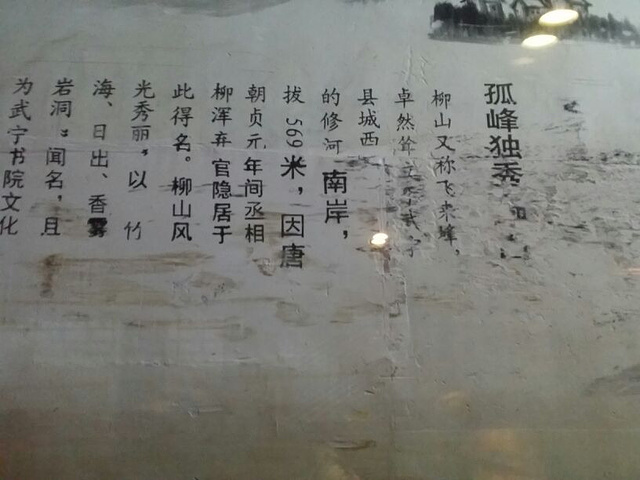 孤峰独秀
柳山又称飞来峰，
卓然耸立于武宁
县城西
的修河南岸，
拔569米，因唐
朝贞元年间丞相
柳浑弃官隐居于
此得名。柳山风
光秀丽，以竹
海、日出、香雾
岩洞"闻名，且
为武宁书院文化